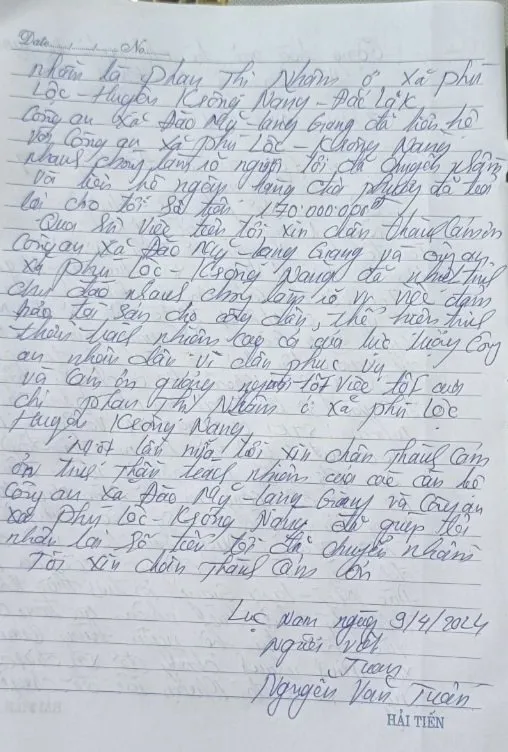 Date............No........
nhầm là Phan Thị Nhâm ở xã phú
Lộc - Huyện Krông Nang - Đắc Lắk
Công an Xã Đào Mỹ - Lang Giang đã liên hệ
với Công an xã phú Lộc - Krông Nang
nhanh chóng làm rõ người tôi đã chuyển nhầm
và liên hệ ngân hàng chị Nhâm đã
lại cho tôi số tiền 170.000.000đ
Qua sự việc trên tôi xin chân thành Cảm ơn
Công an xã Đào Mỹ - Lang Giang và công an
xã phú Lộc - Krông Nang đã nhiệt tình
chu đáo nhanh chóng làm rõ vụ việc đảm
bảo tài sản cho công dân, thể hiện tinh
thần trách nhiệm cao cả của lực lượng Công
an nhân dân vì dân phục vụ
và Cảm ơn gương người tốt việc tốt của
chị phan Thị Nhâm ở xã phú Lộc
Huyện Krông Nang,
Một lần nữa tôi xin chân thành Cảm
ơn tinh thần trách nhiệm của các cán bộ
Công an xã Đào Mỹ - Lang Giang và Công an
xã phú Lộc - Krông Nang đã giúp tôi
nhận lại số tiền tôi đã chuyển nhầm
Tôi xin chân thành Cảm ơn
Lục Nam ngày 9/4/2024
Người viết
Tuan
Nguyễn Văn Tuân
HẢI TIẾN